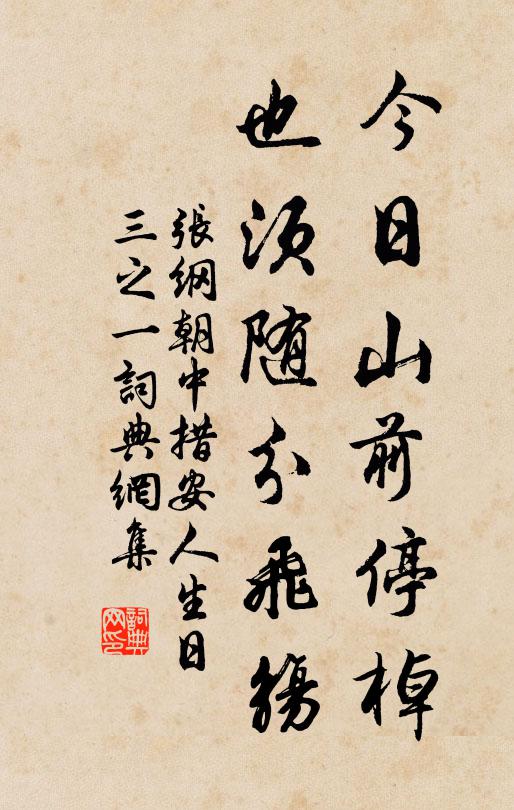 今日山前停棹
也须随分飛觴
張綱朝中措安人生日
三之一詞典網集
詞典网印